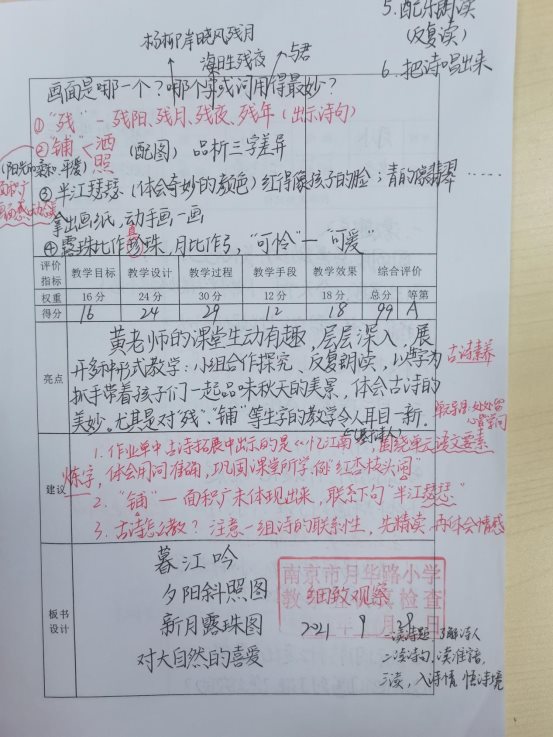 5. 配乐朗读
(反复读)
6. 把诗唱出来
杨柳岸晓风残月
海日生残夜
与君
画面是哪一个？哪个字或词用得最妙？
①“残”－残阳、残月、残夜、残年(出示诗句)
②“铺” 洒
照
(配图) 品析三字差异
(阳光和柔和、平缓)
面积广
③半江瑟瑟(体会奇妙的颜色)红得像孩子的脸；青的像翡翠……
拿出画纸,动手画一画
④露珠比作珍珠,月比作弓,“可怜”—“可爱”
真
评价指标 教学目标 教学设计 教学过程 教学手段 教学效果 综合评价
权重 16分 24分 30分 12分 18分 总分 等第
得分 16 24 29 12 18 99 A
亮点
黄老师的课堂生动有趣,层层深入,展
开多种形式教学:小组合作探究、反复朗读,以学为
抓手带着孩子们一起品味秋天的美景,体会古诗的
美妙。尤其是对“残”、“铺”等生字的教学令人耳目一新。
古诗素养
建议
1. 作业单中古诗拓展中出示的是《忆江南》,围绕单元语文要素
炼字,体会用词准确,巩固课堂所学,例“红杏枝头闹”
2. “铺”—面积广未体现出来,联系下句“半江瑟瑟”
3. 古诗怎么教？注意一组诗的联系性,先精读,再体会情感
板书设计
暮江吟
夕阳斜照图
新月露珠图
对大自然的喜爱
细致观察
南京市月华路小学
检查
2021 9 28
一读诗题,了解诗人
二读诗句,读准诗
三读,入诗情,悟诗境